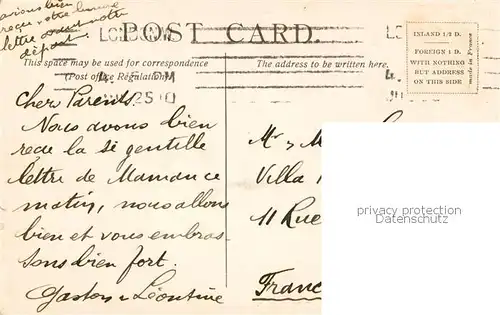 avions bien
reçu votre bonne
lettre avant notre
départ.
LONDON.W
POST CARD.
This space may be used for correspondence
(Post office Regulation)
The address to be written here.
INLAND 1/2 D.
FOREIGN 1 D.
WITH NOTHING
BUT ADDRESS
ON THIS SIDE
made in France
Cher Parents.
Nous avons bien
recu la si gentille
lettre de Maman ce
matin, nous allons
bien et vous embras-
sons bien fort.
Gaston & Léontine
Mr & M
Villa
11 Rue
Franc
privacy protection
Datenschutz